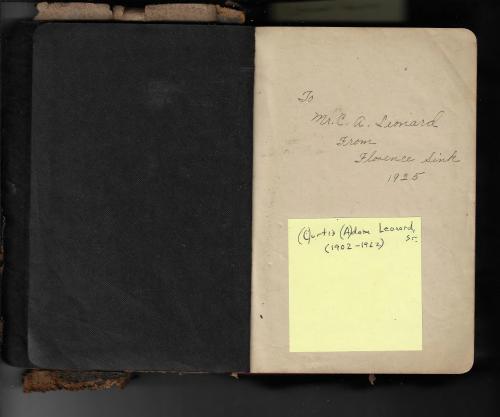 To
Mr. C. A. Leonard
From
Florence Sink
1925
(C)urtis (A)dam Leonard, Sr.
(1902-1962)